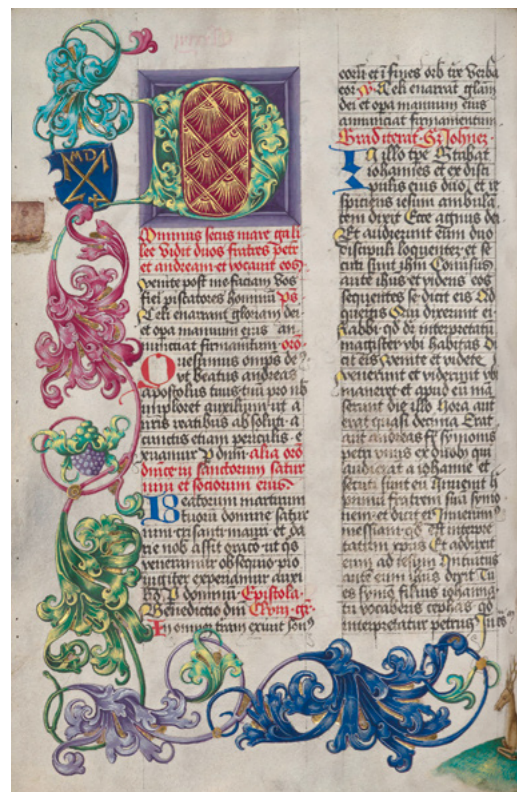 MD
Dominus secus mare gali
lee vidit duos fratres petr
et andream et vocauit eos
venite post me faciam vos
fiei piscatores hominu ps
Celi enarrant gloriam dei
et opa manuum eius an
nunciat firmamentum oro
Quesumus omps deꝰ
vt beatus andreas
apostolus tuus tuū pro nob
imploret auxilium ut a
nris reatibus absoluti a
cunctis etiam periculis e
xuamur P dnm alia oro
sanctorum satur
nini et sociorum eius
Beatorum martirum
tuorum domine satur
nini crisanti mauri et da
rie nob assit oracio ut qs
veneramur obsequio pio
iugiter experiamur auxi
P dominum Epistola
Benedictio dni
In omnem tram exiuit sonꝰ
eorū et ī fines orb tre verba
eor Celi enarrāt glām
dei et opa manuum eius
annuciat firmamentum
Johnez
In illo tpe Stabat
iohannes et ex disci
pulis eius duo et re
spiciens iesum ambula
tem dixit Ecce agnus dei
Et audierunt eum duo
discipuli loquentez et se
cuti sunt ihm Conūsus
aute ihus et videns eos
sequentes se dicit eis Qd
queritis Qui dixerunt ei
Rabbi qd dr interpretatū
magister vbi habitas Di
cit eis venite et videte
venerunt et viderunt vbi
maneret et apud eu mā
serunt die illo Hora aut
erat quasi decima Erat
aut andreas fr symonis
petri vnus ex duob qui
audierāt a iohanne et
secuti sunt eū Inuenit h
primū fratrem suū symo
nem et dicit ei Inuenimꝰ
messiam qd est interpre
tatum xpus Et adduxit
eum ad iesum Intuitus
aute eum ihus dixit Tu
es symō filius iohanna
tu vocaberis cephas qd
interpretatur petrus